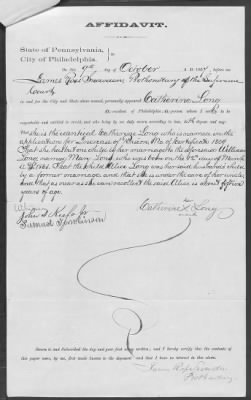 AFFIDAVIT.
State of Pennsylvania,
City of Philadelphia. ss
On this 9th day of October A. D. 1867 before
James Ross Snowden Prothonotary of the Supreme
Court
in and for the City and State above named, personally appeared Catherine Long
a resident of Philadelphia, a person whom I certify to be
respectable and entitled to credit, and who being by me duly sworn according to law, doth depose and say
She is the identical Catherine Long who is named in the
application for Increase of Pension No of Certificate
That she had but one child by her marriage to the aforesaid William
Long, named Mary Long who was born on the day of March
1861. That the child Alice Long was her said husband's child
by a former marriage and that she is under the care of her uncle
and that as near as she can recollect the said Alice is about fifteen
years of age
John S Keefe Jr
Samuel
Catherine X Long
mark
Sworn to and subscribed the day and year first above written, and I hereby certify that the contents of
this paper were, by me, first made known to the deponent and that I have no interest in the claim.
James Ross Snowden
Prothonotary